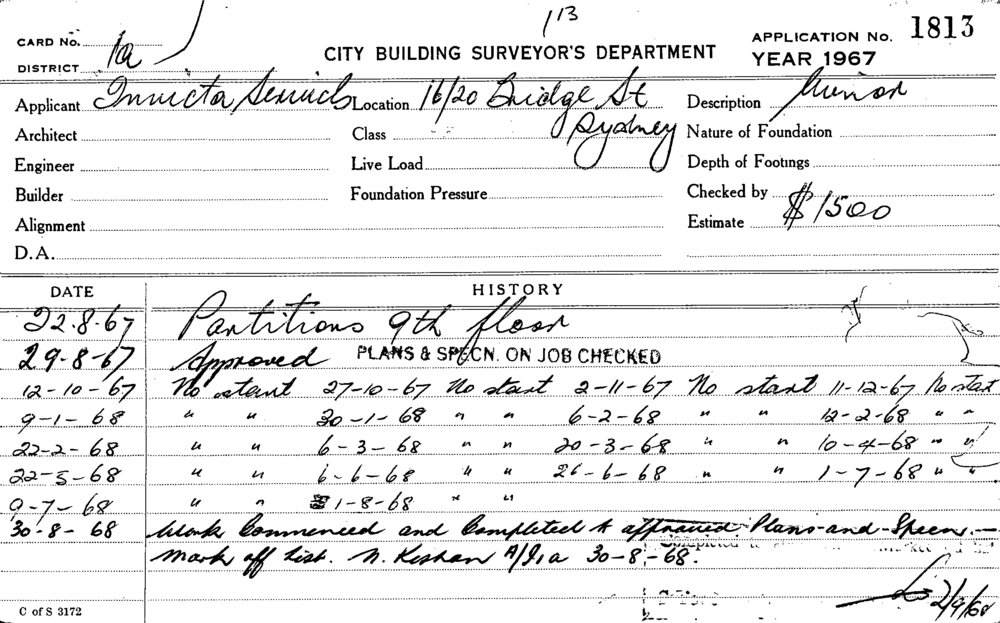 113
CARD No. APPLICATION No. 1813
CITY BUILDING SURVEYOR'S DEPARTMENT
DISTRICT 1a YEAR 1967
Applicant Invicta Services Location 16/20 Bridge St Sydney Description Minor
Architect Class Nature of Foundation
Engineer Live Load Depth of Footings
Builder Foundation Pressure Checked by
Alignment Estimate $1500
D.A.
DATE HISTORY
22.8.67 Partitions 9th floor
29-8-67 Approved PLANS & SPECN. ON JOB CHECKED
12-10-67 No start 27-10-67 No start 2-11-67 No start 11-12-67 No start
9-1-68 " " 30-1-68 " " 6-2-68 " " 12-2-68 " "
22-2-68 " " 6-3-68 " " 20-3-68 " " 10-4-68 " "
22-5-68 " " 6-6-68 " " 26-6-68 " " 1-7-68 " "
9-7-68 " " 1-8-68 " "
30-8-68 Work Commenced and Completed to approved Plans and Specn.
Mark off list. N. A/I 1a 30-8-68.
2/9/68
C of S 3172